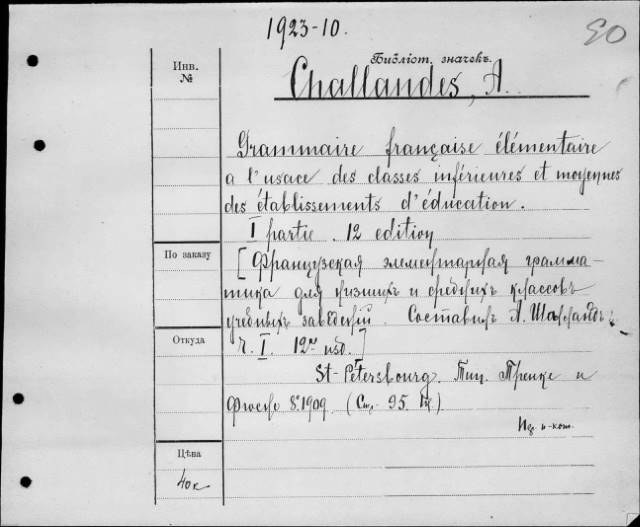 1923-10.
Библіот. значекъ.
Инв.
№
Challandes, A.
Grammaire française élémentaire
a l'usace des classes inférieures et moyennes
des établissements d'éducation.
I partie. 12 edition
По заказу
[Французская элементарная грамма-
тика для низшихъ и среднихъ классовъ
учебныхъ заведеній. Составилъ А. Шалландъ.
Откуда
Ч. I. 12ое изд.]
St-Petersbourg. Тип. Тренке и
Фюсно 8º. 1909. (Стр. 95.
Цѣна
40 к